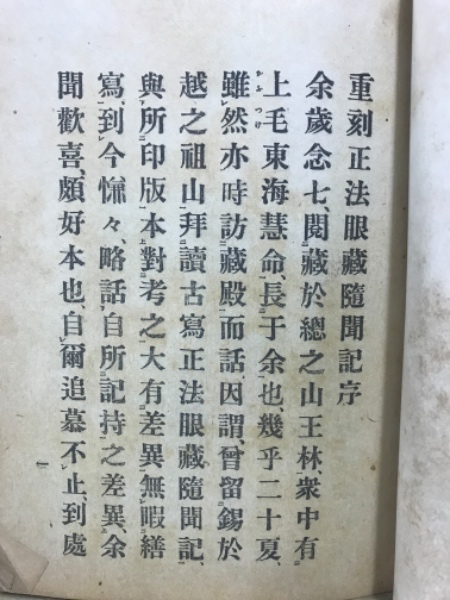 重刻正法眼藏隨聞記序
余歲念七、閱藏於總之山王林、衆中有
上毛東海慧命、長于余也、幾乎二十夏、
雖然亦時訪藏殿而話、因謂、曾留錫於
越之祖山、拜讀古寫正法眼藏隨聞記、
與所印版本對考之大有差異無暇繕
寫、到今慊々、略話自所記持之差異、余
聞歡喜、頗好本也、自爾追慕不止、到處
一